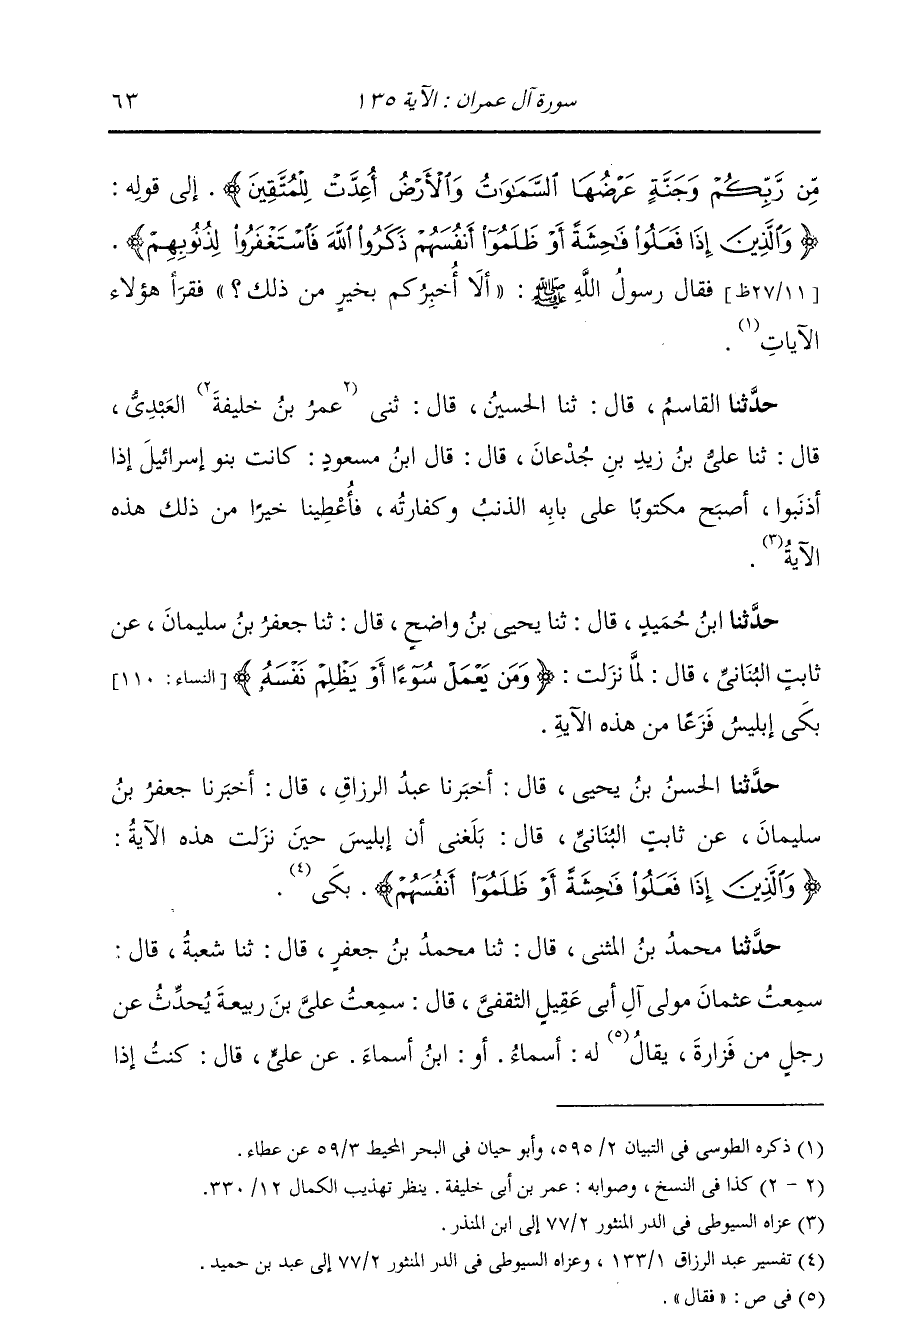 سورة آل عمران : الآية ١٣٥ ٦٣
مِّن رَّبِّكُمْ وَجَنَّةٍ عَرْضُهَا السَّمَاوَاتُ وَالْأَرْضُ أُعِدَّتْ لِلْمُتَّقِينَ﴾ . إلى قولِه :
﴿وَالَّذِينَ إِذَا فَعَلُوا فَاحِشَةً أَوْ ظَلَمُوا أَنفُسَهُمْ ذَكَرُوا اللَّهَ فَاسْتَغْفَرُوا لِذُنُوبِهِمْ﴾ .
[٢٧/١١ظ] فقال رسولُ اللَّهِ ﷺ : «ألَا أُخبِرُكم بخيرٍ من ذلك؟» فقرَأ هؤلاء
الآياتِ(١) .
حدَّثنا القاسمُ ، قال : ثنا الحسينُ ، قال : ثنى (٢عمرُ بنُ خليفةَ٢) العَبْدِىُّ ،
قال : ثنا علىُّ بنُ زيدِ بنِ جُدْعانَ ، قال : قال ابنُ مسعودٍ : كانت بنو إسرائيلَ إذا
أذنَبوا ، أصبَح مكتوبًا على بابِه الذنبُ وكفارتُه ، فأُعْطِينا خيرًا من ذلك هذه
الآيةُ(٣) .
حدَّثنا ابنُ حُمَيدٍ ، قال : ثنا يحيى بنُ واضحٍ ، قال : ثنا جعفرُ بنُ سليمانَ ، عن
ثابتٍ البُنَانىِّ ، قال : لمَّا نزَلت : ﴿وَمَن يَعْمَلْ سُوءًا أَوْ يَظْلِمْ نَفْسَهُ﴾ [النساء : ١١٠]
بكَى إبليسُ فَزَعًا من هذه الآيةِ .
حدَّثنا الحسنُ بنُ يحيى ، قال : أخبَرنا عبدُ الرزاقِ ، قال : أخبَرنا جعفرُ بنُ
سليمانَ ، عن ثابتٍ البُنَانىِّ ، قال : بَلَغنى أن إبليسَ حينَ نزَلت هذه الآيةُ :
﴿وَالَّذِينَ إِذَا فَعَلُوا فَاحِشَةً أَوْ ظَلَمُوا أَنفُسَهُمْ﴾ . بكَى(٤) .
حدَّثنا محمدُ بنُ المثنى ، قال : ثنا محمدُ بنُ جعفرٍ ، قال : ثنا شعبةُ ، قال :
سمِعتُ عثمانَ مولى آلِ أبى عَقِيلٍ الثقفىَّ ، قال : سمِعتُ علىَّ بنَ ربيعةَ يُحدِّثُ عن
رجلٍ من فَزارةَ ، يقالُ(٥) له : أسماءُ . أو : ابنُ أسماءَ . عن علىٍّ ، قال : كنتُ إذا
(١) ذكره الطوسى فى التبيان ٥٩٥/٢، وأبو حيان فى البحر المحيط ٥٩/٣ عن عطاء .
(٢ - ٢) كذا فى النسخ ، وصوابه : عمر بن أبى خليفة . ينظر تهذيب الكمال ٣٣٠/١٢.
(٣) عزاه السيوطى فى الدر المنثور ٧٧/٢ إلى ابن المنذر .
(٤) تفسير عبد الرزاق ١٣٣/١ ، وعزاه السيوطى فى الدر المنثور ٧٧/٢ إلى عبد بن حميد .
(٥) فى ص : «فقال» .